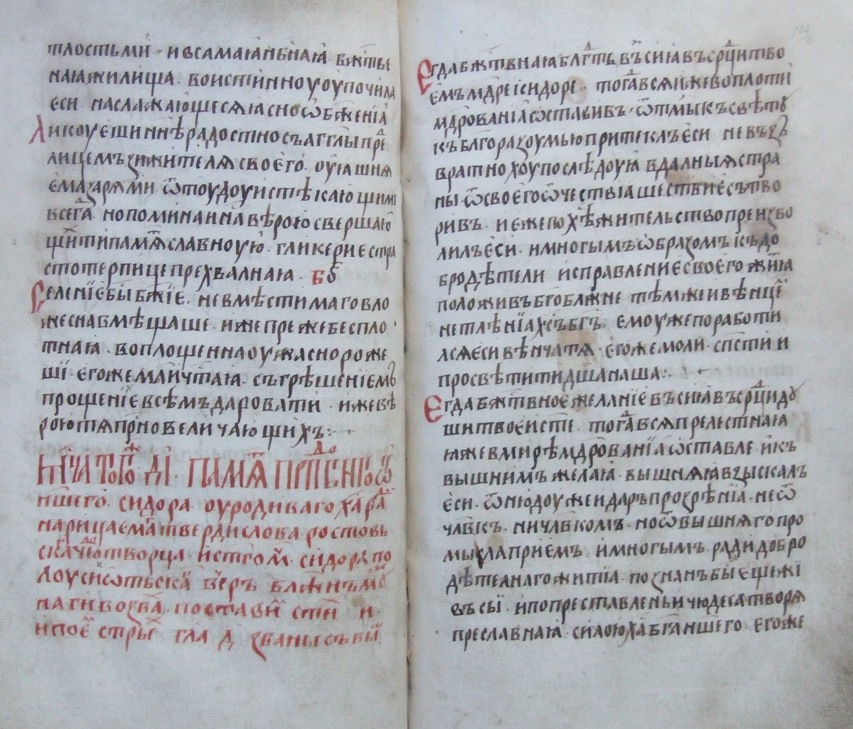 тлостьми · и всамаıаньнаıа бжтве
наıа жилища . воистинноу оупочила
еси наслажающесѧ ıасно ѡбженїа
Ликоуеши ннѣ радостно съ агглы пре
лицемъ зижителѧ своего . оуıашнѧ
ема зарѧми ѿтоудоу истѣкающими
всегда . но поминаи на вѣрою свершаю
щїи ти памѧ славноую . гликерие стра
стотерпице прехвалнаıа . бо
Селенїе бы бжїе . невмѣстимаго вло
жеснавмѣщаше . иже преже беспло
тнаıа . воплощенна оужасно роже
шї . егоже маи чтаıа . съгрѣшением
прощенїе всѣм даровати . иже вѣ
рою тѧ прно величающихъ :
мца того ж ді . памѧ прпбнго ѡ
ншего . сидора . оуродиваго ха ра
нарицаемаг твердислова . ростовь
скаг чютворца . и стго м . сидора . по
на ги возва . поставї сти и
и пое стры гла д званы съвы
Егда бжтвнаıа блгть въсиıа въ срци тво
емъ мдре ісидоре . тогда всѧ иже во плоти
мдрованїа ѡставивъ . ѿ тмы къ свѣту
къ благоразоумью притеклъ еси невъз
вратно хоу послѣдоуıа в далныıа стра
ны ѿ своего ѡчествїа шествие сътво
ривъ . и еже по хѣ жительство преизво
лилъ еси . и многым ѡбразом къ до
бродѣтели исправление своего житїа
положивъ бгоблжне тѣмже и вѣнцеі
нетлѣнїа хсъ бгъ . емоуже поработи
лсѧ еси вѣнчатѧ . егоже моли . спсти и
просвѣтити дша наша :
Егда бжтвное желание въсиıа въ срци ду
ши твоеи сте . тогда всѧ прелестнаıа
ıаже в мирѣ мдрованїа ѡставле и къ
вышним желаıа . вышнѧıа взыскалъ
еси . ѿнюдоуже и даръ прозрѣнїа . не ѿ
члвкъ . ни члвком . но ѿ вышнѧго про
мысла приемъ . и многым ради добро
дѣтелнаго житїа познанъ бы еще жі
въ сы и по преставленьи чюдеса творѧ
преславнаıа . силою ха бга ншего . егоже